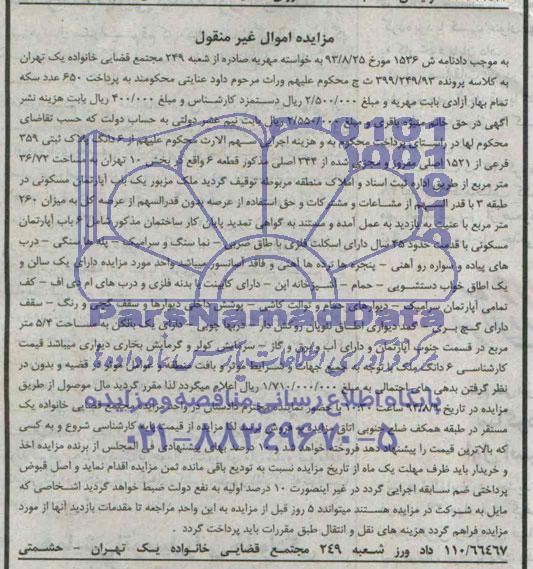 مزایده اموال غیر منقول
به موجب دادنامه ش ۱۵۳۶ مورخ ۹۳/۸/۲۵ به خواسته مهریه صادره از شعبه ۲۴۹ مجتمع قضایی خانواده یک تهران
به کلاسه پرونده ۳۹۹/۲۴۹/۹۳ ث ج محکوم علیهم وراث مرحوم داود عنایتی محکومند به پرداخت ۶۵۰ عدد سکه
تمام بهار آزادی بابت مهریه و مبلغ ۲/۵۰۰/۰۰۰ ریال دستمزد کارشناس و مبلغ ۴۰۰/۰۰۰ ریال بابت هزینه نشر
آگهی در حق خانم منیژه باقری و مبلغ ۲/۵۵۰/۰۰۰ ریال بابت نیم عشر دولتی به حساب دولت که حسب تقاضای
محکوم لها در راستای پرداخت محکوم به و هزینه اجرایی سهم الارث محکوم علیهم از ۶ دانگ پلاک ثبتی ۳۵۹
فرعی از ۱۵۲۱ اصلی مفروز و مجزی شده از ۳۴۴ اصلی مذکور قطعه ۶ واقع در بخش ۱۰ تهران به مساحت ۳۶/۷۲
متر مربع از طریق اداره ثبت اسناد و املاک منطقه مربوطه توقیف گردید ملک مزبور یک باب آپارتمان مسکونی در
طبقه ۳ با قدر السهم از مشاعات و مشترکات و حق استفاده از عرصه بدون قدرالسهم از عرصه کل به میزان ۲۶۰
متر مربع با عنایت به بازدید به عمل آمده و مستند به گواهی تمدید پایان کار ساختمان مذکور شامل ۶ باب آپارتمان
مسکونی با قدمت حدود ۲۵ سال دارای اسکلت فلزی با طاق ضربی – نما سنگ و سرامیک – پله ها سنگی – درب
های پیاده و سواره رو آهنی – پنجره ها نرده ها آهنی و فاقد آسانسور میباشد واحد مورد مزایده دارای یک سالن و
یک اطاق خواب دستشویی – حمام – آشپزخانه اپن – دارای کابینت با بدنه فلزی و درب های ام دی اف – کف
تمامی آپارتمان سرامیک – دیوارهای حمام و توالت کاشی – پوشش داخلی دیوارها و سقف گچی و رنگ – سقف
دارای گچ بری – کمد دیواری اطاق نئوپان روکش دار – دربها چوبی – دارای یک بالکن به مساحت ۵/۴ متر
مربع در قسمت جنوب آپارتمان و دارای آب و برق و گاز – سرمایش کولر و گرمایش بخاری دیواری میباشد قیمت
کارشناسی ۶ دانگ ملک با توجه به جمیع جهات و شرایط موثر و بافت منطقه و عوامل موثر در قضیه و بدون در
نظر گرفتن بدهی های احتمالی به مبلغ ۱/۷۱۰/۰۰۰/۰۰۰ ریال اعلام میگردد لذا مقرر گردید مال موصول از طریق
مزایده در تاریخ با حضور نماینده محترم دادستان در واحد مجتمع قضایی خانواده یک
مستقر در طبقه همکف ضلع جنوبی اتاق مزایده به فروش لذا مزایده از قیمت پایه کارشناسی شروع و به کسی
که بالاترین قیمت را پیشنهاد دهد فروخته خواهد شد ۱۰ درصد بهای پیشنهادی فی المجلس از برنده مزایده اخذ
و خریدار باید ظرف مهلت یک ماه از تاریخ مزایده نسبت به تودیع باقی مانده ثمن مزایده اقدام نماید و اصل قبوض
پرداختی ضم سابقه اجرایی گردد در غیر اینصورت ۱۰ درصد اولیه به نفع دولت ضبط خواهد گردید اشخاصی که
مایل به شرکت در مزایده هستند میتوانند ۵ روز قبل از مزایده به این واحد مراجعه تا مقدمات بازدید آنها از مورد
مزایده فراهم گردد هزینه های نقل و انتقال طبق مقررات باید پرداخت گردد .
۱۱۰/۶۶۴۶۷ داد ورز شعبه ۲۴۹ مجتمع قضایی خانواده یک تهران – حشمتی
ParsNamadData
پایگاه اطلاع رسانی مناقصه و مزایده
۰۲۱-۸۸۳۴۹۶۷۰-۵